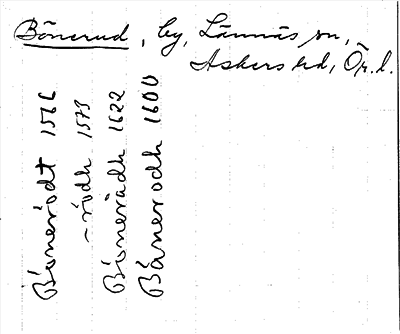 Bönerud, by, Lännäs sn,
Askers hd, Ör. l.
Bönerödt 1566
– rödh 1579
Bönerådh 1622
Bånerodh 1600